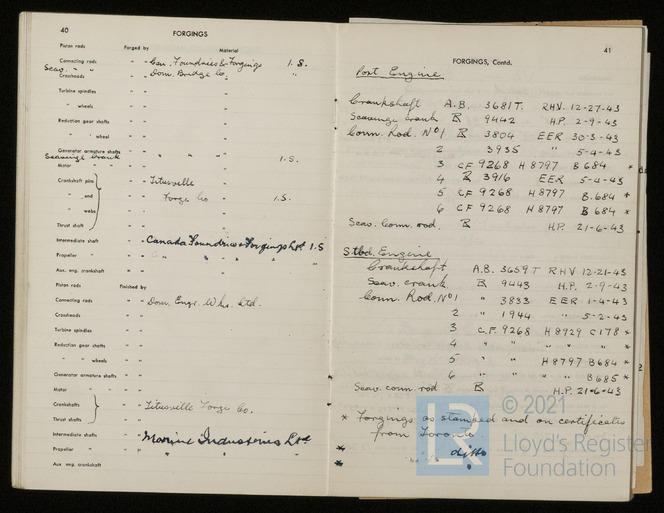 40
FORGINGS
Piston rods Forged by Material
Connecting rods " " Can. Foundries & Forgings I.S.
Scav. " "
Crossheads " " Dom. Bridge Co. "
Turbine spindles " " "
" wheels " " "
Reduction gear shafts " " "
" " wheel " " "
Generator armature shafts " " "
Scavenge Crank " " " I.S.
Motor " " " "
Crankshaft pins " " Titusville "
" and " " Forge Co " I.S.
" webs " " "
Thrust shaft " " "
Intermediate shaft " " Canada Foundries & Forgings Ltd I.S
Propeller " " " " " " " "
Aux. eng. crankshaft " " "
Piston rods Finished by
Connecting rods " " Dom. Engr. Wks. Ltd.
Crossheads " "
Turbine spindles " "
Reduction gear shafts " "
" " wheels " "
Generator armature shafts " "
Motor " " "
Crankshafts " " Titusville Forge Co.
Thrust shafts " "
Intermediate shafts " " Marine Industries Ltd
Propeller " " " " " "
Aux eng. crankshaft " "
41
FORGINGS, Contd.
Port Engine
Crankshaft A.B. 3681T. RHV. 12-27-43
Scavenge crank LR 9442 H.P. 2-9-43
Conn. Rod. No1 LR 3804 EER 30-3-43
2 3935 " 5-4-43
3 CF 9268 H8797 B684 *
4 LR 3916 EER 5-4-43
5 CF 9268 H8797 B.684 *
6 CF 9268 H8797 B 684 *
Scav. Conn. rod. LR H.P. 21-6-43
Stbd. Engine
Crankshaft A.B. 3659T RHV 12-21-43
Scav. crank LR 9443 H.P. 2-9-43
Conn. Rod. No1 " 3833 EER 1-4-43
2 " 1944 " 5-2-43
3 C.F. 9268 H8929 C178 *
4 " " " " *
5 " " H8797 B684 *
6 " " " B685 *
Scav. conn. rod LR H.P. 21-6-43
* Forgings as stamped and on certificates
from Toronto
* ditto
*
© 2021
LR
Lloyd's Register
Foundation